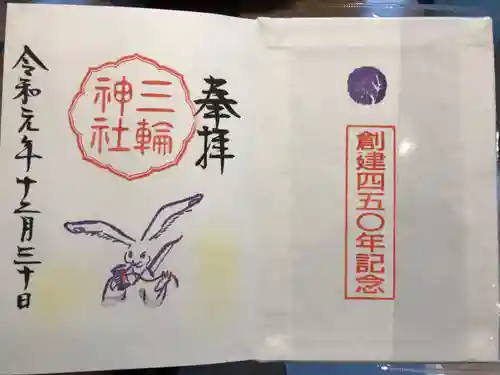 創建四五〇年記念
奉拝
三輪
神社
令和元年十二月三十日